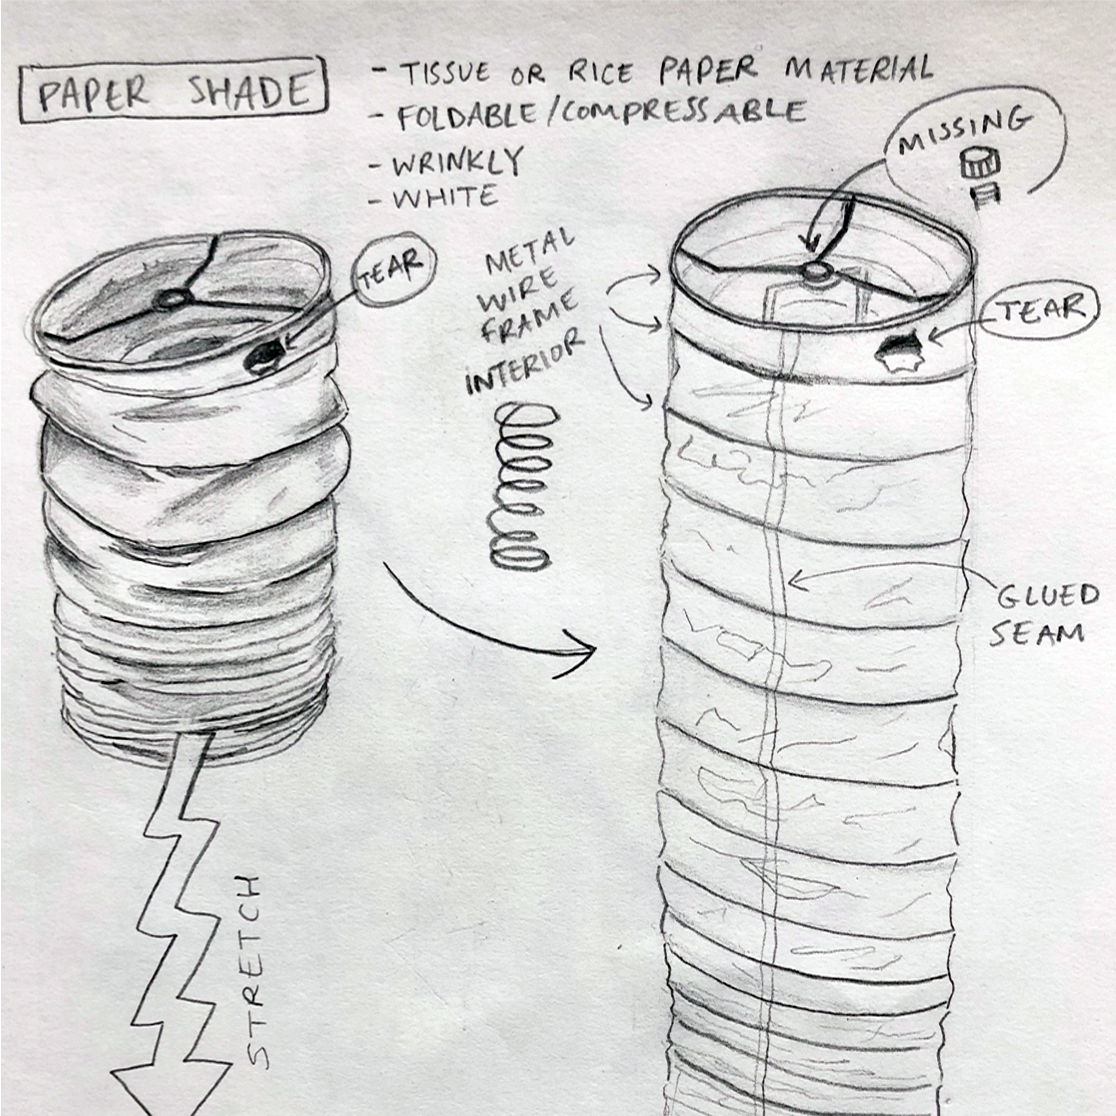 PAPER SHADE
- TISSUE OR RICE PAPER MATERIAL
- FOLDABLE/COMPRESSABLE
- WRINKLY
- WHITE
MISSING
TEAR
METAL
WIRE
FRAME
INTERIOR
TEAR
GLUED
SEAM
STRETCH